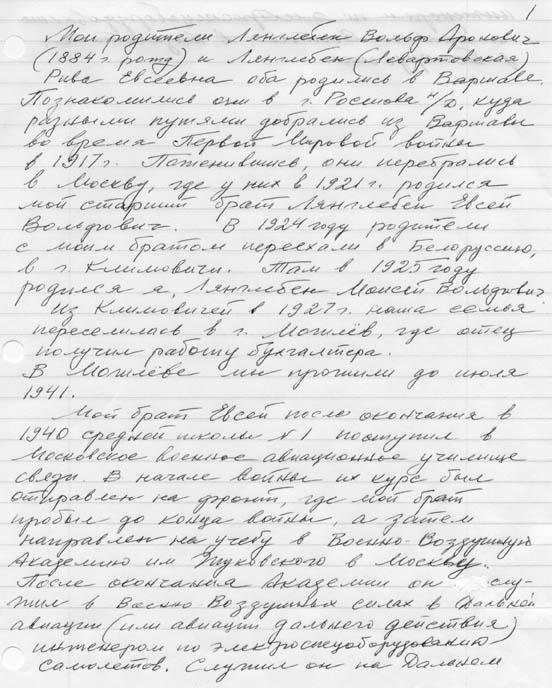 1
Мои родители Лянглебен Вольф Аронович
(1884 г. рожд) и Лянглебен (Левартовская)
Рива Евсеевна оба родились в Варшаве.
Познакомились они в г. Ростова н/Д, куда
разными путями добрались из Варшавы
во время Первой Мировой войны
в 1917 г. Поженившись, они перебрались
в Москву, где у них в 1921 г. родился
мой старший брат Лянглебен Евсей
Вольфович. В 1924 году родители
с моим братом переехали в Белоруссию,
в г. Климовичи. Там в 1925 году
родился я, Лянглебен Моисей Вольфович.
Из Климовичей в 1927 г. наша семья
переселилась в г. Могилёв, где отец
получил работу бухгалтера.
В Могилёве мы прожили до июля
1941.
Мой брат Евсей после окончания в
1940 средней школы №1 поступил в
Московское военное авиационное училище
связи. В начале войны их курс был
отправлен на фронт, где мой брат
пробыл до конца войны, а затем
направлен на учебу в Военно-Воздушную
Академию им Жуковского в Москву.
После окончания Академии он слу-
жил в Военно-Воздушных силах в Дальней
авиации (или авиации дальнего действия)
инженером по электроспецоборудованию
самолетов. Служил он на Дальнем